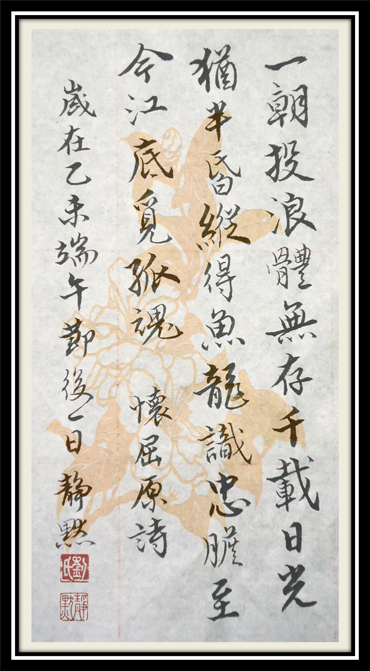 一朝投浪體無存千載日光
猶半昏縱得魚龍識忠膽至
今江底覓孤魂 懷屈原詩
歲在乙未端午節後一日 靜默
劉氏
靜默